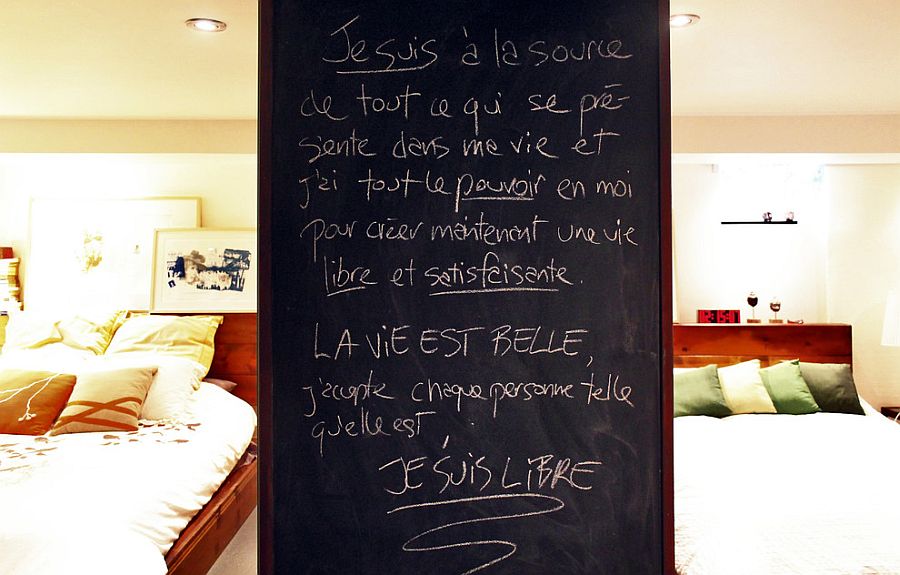 Je suis à la source
de tout ce qui se pré-
sente dans ma vie et
j'ai tout le pouvoir en moi
pour créer maintenant une vie
libre et satisfaisante.
LA VIE EST BELLE,
j'accepte chaque personne telle
qu'elle est.
JE SUIS LIBRE